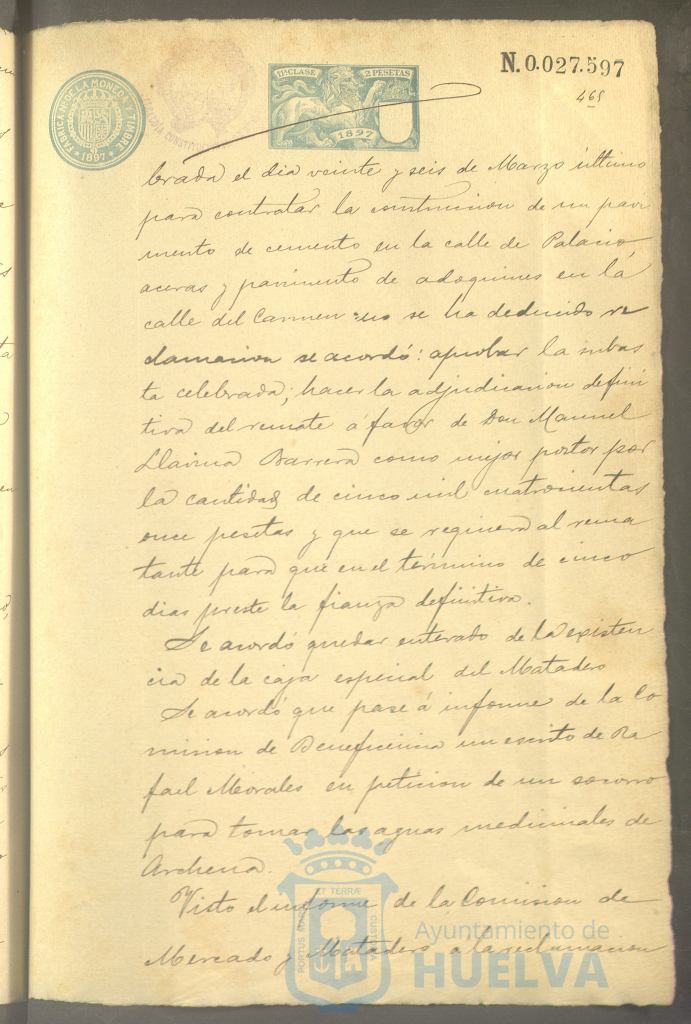 FABRICA NAL DE LA MONEDA Y TIMBRE
* 1897 *
11ª CLASE 2 PESETAS
1897
N.0.027.597
465
brada el dia veinte y seis de Marzo último
para contratar la construccion de un pavi
mento de cemento en la calle de Palacio,
aceras y pavimento de adoquines en la
calle del Carmen no se ha deducido re
clamacion se acordó: aprobar la subas
ta celebrada; hacer la adjudicacion defini
tiva del remate á favor de Don Manuel
Barrera como mejor postor por
la cantidad de cinco mil cuatrocientas
once pesetas y que se requiera al rema
tante para que en el término de cinco
dias preste la fianza definitiva.
Se acordó quedar enterado de la existen
cia de la caja especial del Matadero
Se acordó que pase á informe de la Co
mision de Beneficencia un escrito de Ra
fael Morales en peticion de un socorro
para tomar las aguas medicinales de
Archena.
Visto el informe de la Comision de
Mercado y Matadero a la reclamacion
PORTUS MARIS ET TERRÆ CUSTODIA
Ayuntamiento de
HUELVA